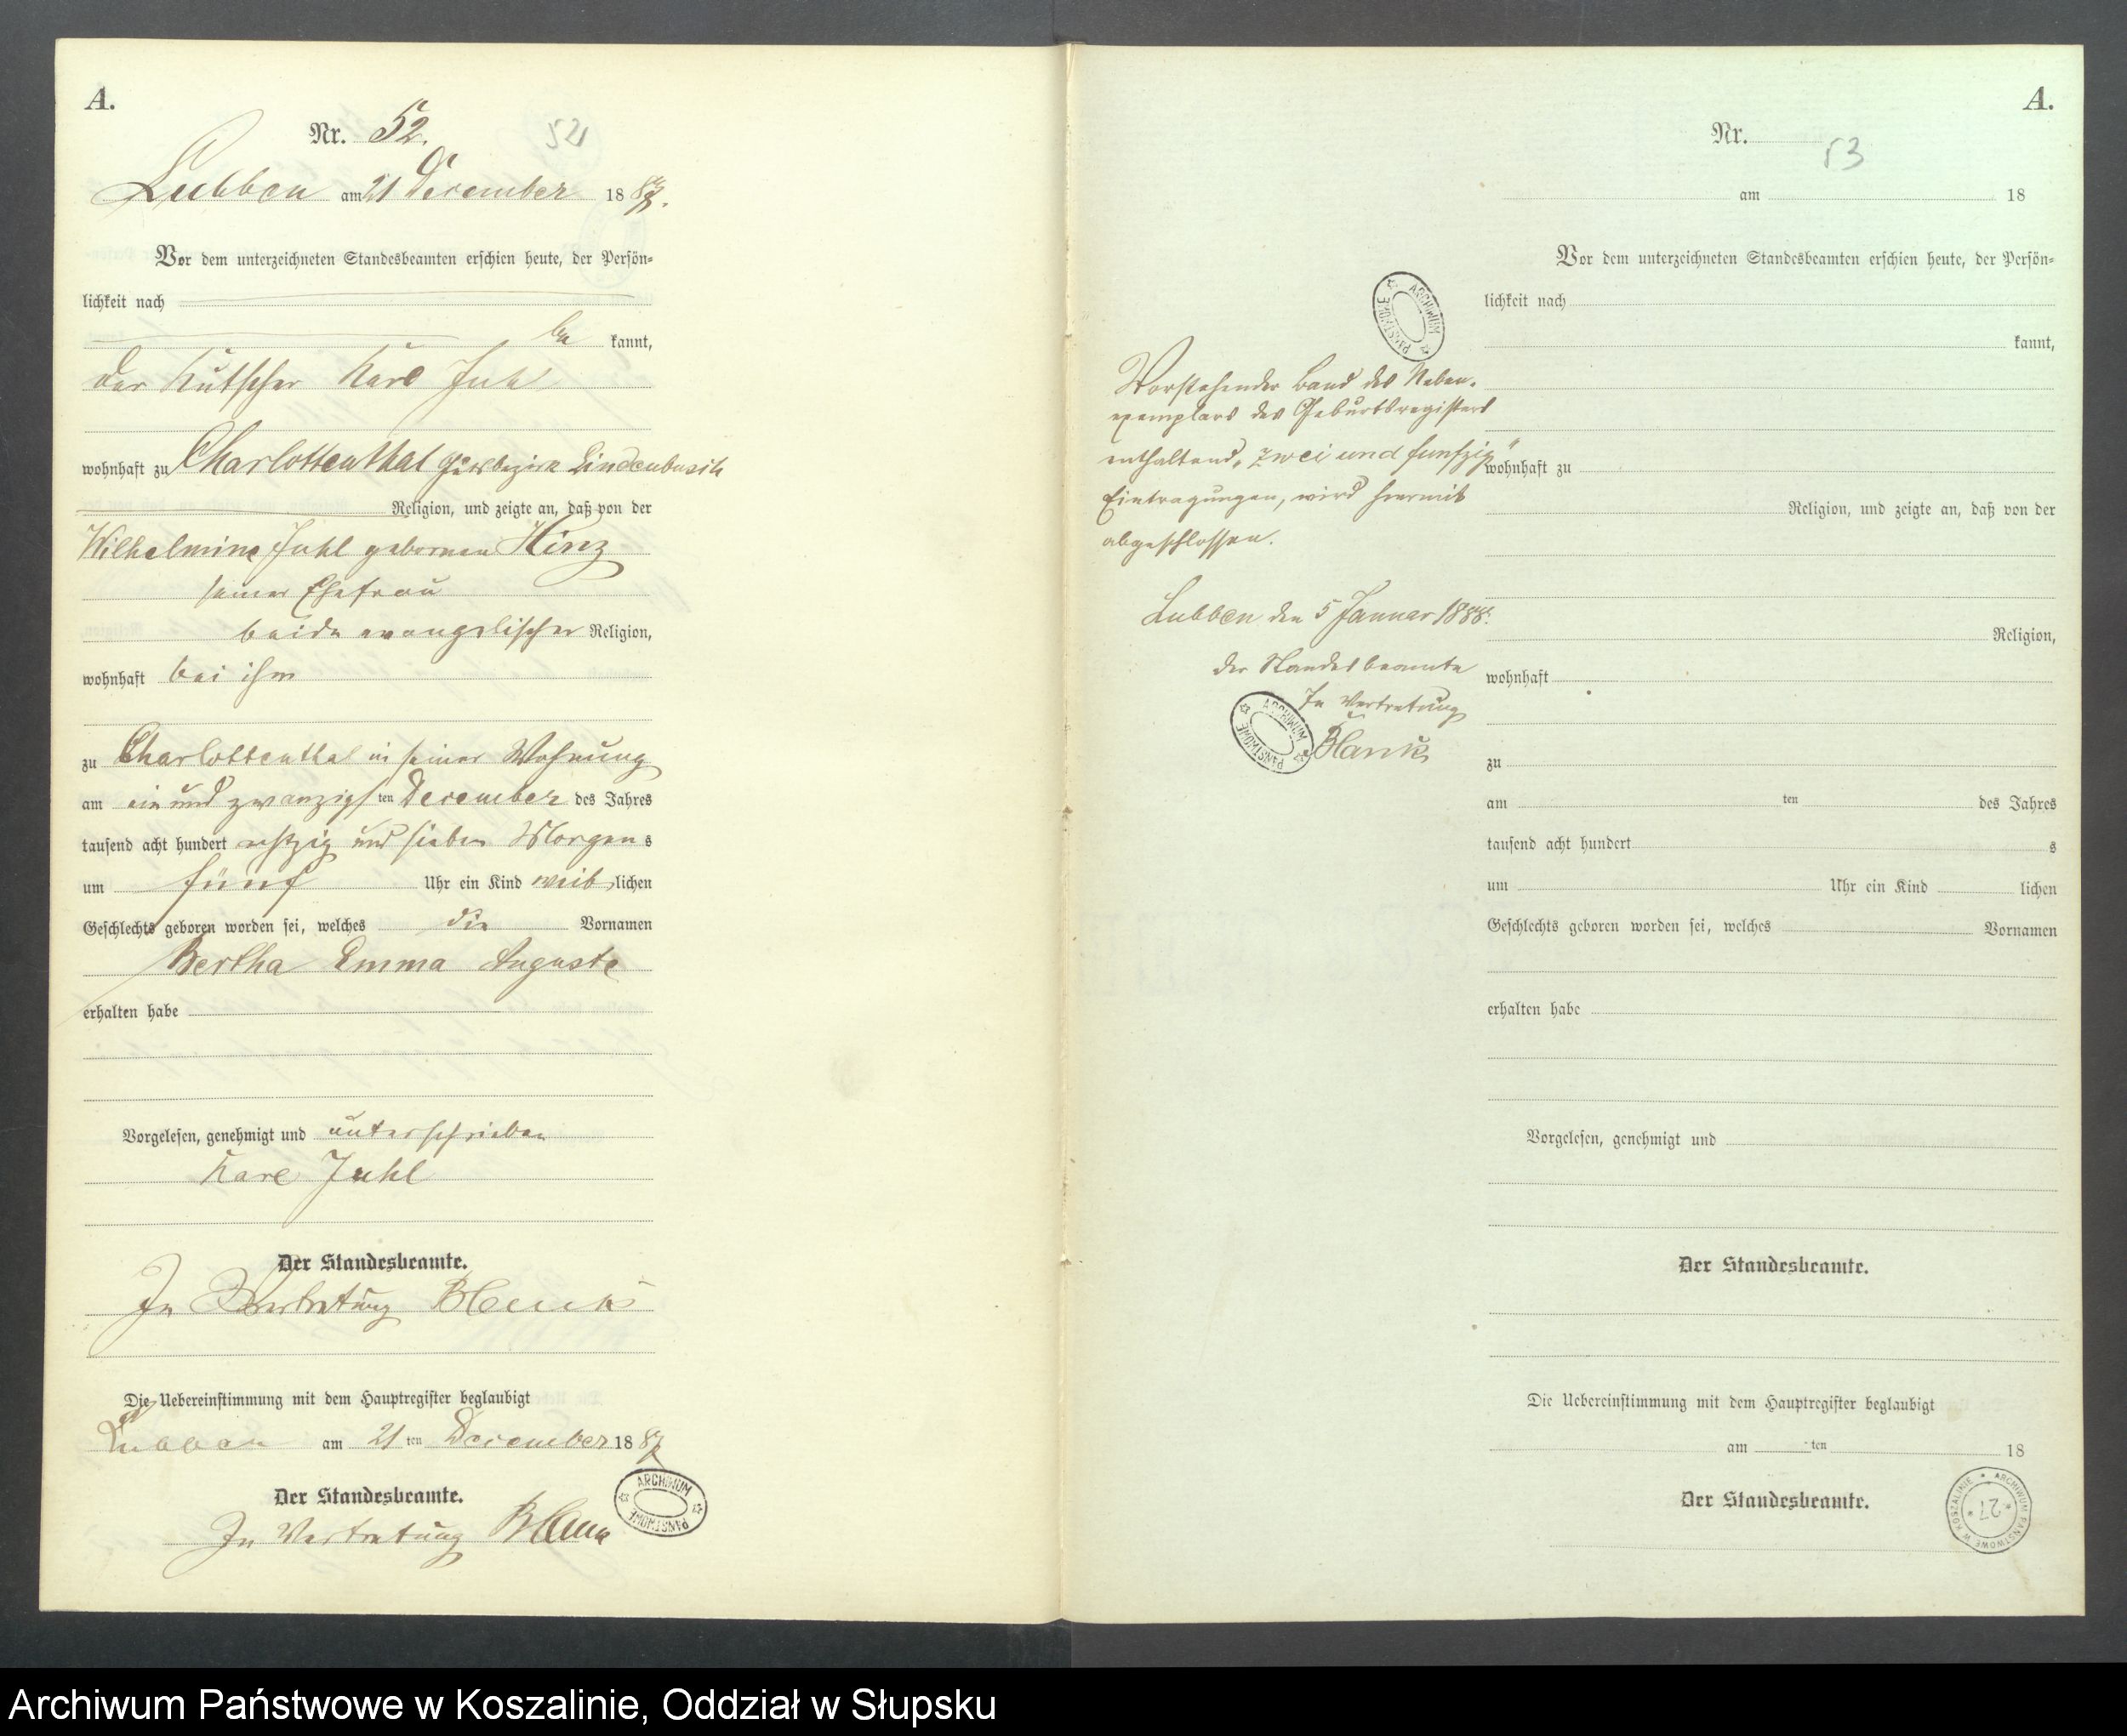 A.
Nr. 52.
52
Lubben am 21 December 1887.
Vor dem unterzeichneten Standesbeamten erschien heute, der Persön-
lichkeit nach
be kannt,
der Kutscher Karl Juhl
wohnhaft zu Charlottenthal Gutsbezirk Lindenbusch
Religion, und zeigte an, daß von der
Wilhelmine Juhl gebornen Hinz
seiner Ehefrau
beide evangelischer Religion,
wohnhaft bei ihm
zu Charlottenthal in seiner Wohnung
am ein und zwanzigs ten December des Jahres
tausend acht hundert achtzig und sieben Morgen s
um fünf Uhr ein Kind weib lichen
Geschlechts geboren worden sei, welches die Vornamen
Bertha Emma Auguste
erhalten habe
Vorgelesen, genehmigt und unterschrieben
Karl Juhl
Der Standesbeamte.
In Vertretung Blank
Die Uebereinstimmung mit dem Hauptregister beglaubigt
Lubben am 21 ten December 1887
Der Standesbeamte.
In Vertretung Blank
ARCHIWUM PAŃSTWOWE
A.
Nr.
53
am 18
Vor dem unterzeichneten Standesbeamten erschien heute, der Persön-
lichkeit nach
kannt,
wohnhaft zu
Religion, und zeigte an, daß von der
Religion,
wohnhaft
zu
am ten des Jahres
tausend acht hundert s
um Uhr ein Kind lichen
Geschlechts geboren worden sei, welches Vornamen
erhalten habe
Vorgelesen, genehmigt und
Der Standesbeamte.
Die Uebereinstimmung mit dem Hauptregister beglaubigt
am ten 18
Der Standesbeamte.
ARCHIWUM PAŃSTWOWE
Vorstehender Band des Neben-
exemplars des Geburtsregisters
enthaltend "zwei und funfzig"
Eintragungen, wird hiermit
abgeschlossen.
Lubben den 5 Januar 1888.
Der Standesbeamte
In Vertretung
Blank
ARCHIWUM PAŃSTWOWE
ARCHIWUM PAŃSTWOWE W KOSZALINIE
* 27 *
Archiwum Państwowe w Koszalinie, Oddział w Słupsku